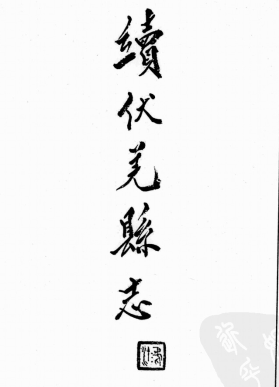 續伏羌縣志